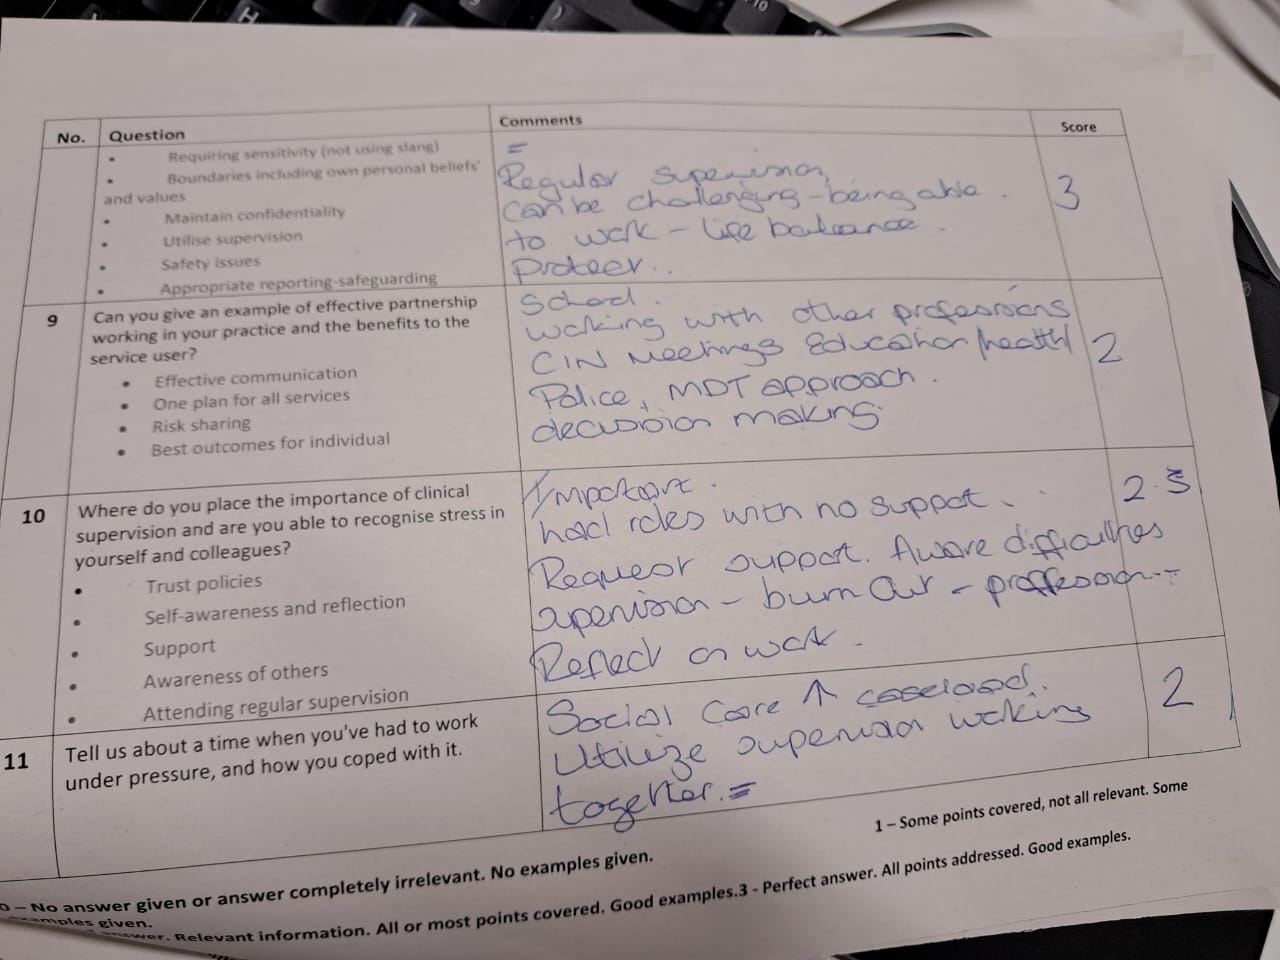 No. Question Comments Score
• Requiring sensitivity (not using slang)
• Boundaries including own personal beliefs'
and values
• Maintain confidentiality
• Utilise supervision
• Safety issues
• Appropriate reporting-safeguarding
Regular supervision,
can be challenging - being able
to work - life balance.
3
9 Can you give an example of effective partnership
working in your practice and the benefits to the
service user?
• Effective communication
• One plan for all services
• Risk sharing
• Best outcomes for individual
School.
working with other professions
CIN Meetings Education/health/
Police, MDT approach.
decision making.
2
10 Where do you place the importance of clinical
supervision and are you able to recognise stress in
yourself and colleagues?
• Trust policies
• Self-awareness and reflection
• Support
• Awareness of others
• Attending regular supervision
Important.
had roles with no support.
Request support. Aware difficulties
supervision - burn out -
Reflect on work.
2.5
11 Tell us about a time when you've had to work
under pressure, and how you coped with it.
Social Care ↑ caseload.
Utilize supervision working
together. =
2
0 – No answer given or answer completely irrelevant. No examples given.
1 – Some points covered, not all relevant. Some
examples given.
answer. Relevant information. All or most points covered. Good examples.3 - Perfect answer. All points addressed. Good examples.